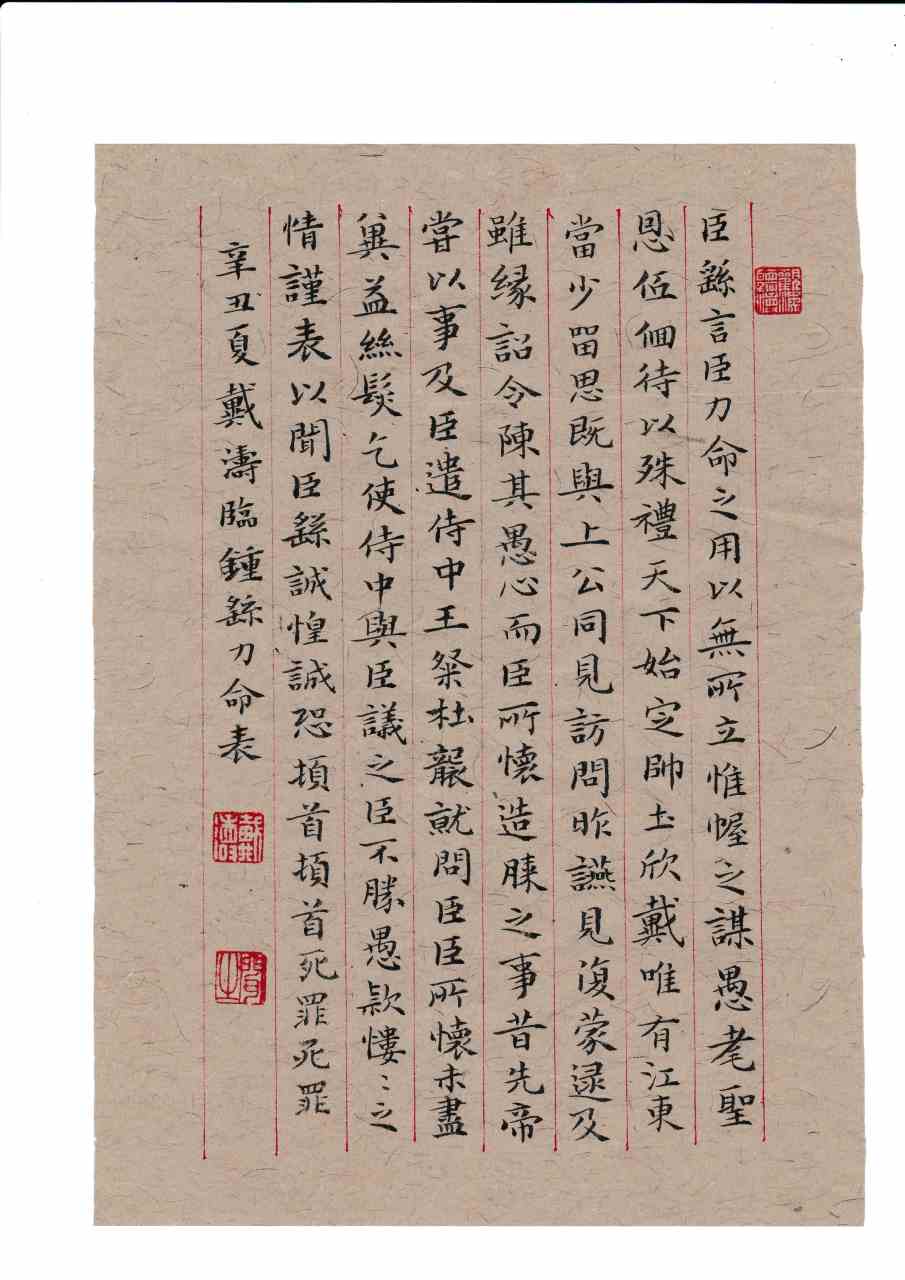 臣繇言臣力命之用以無所立惟幄之謀愚耄聖
恩伍佪待以殊禮天下始定帥土欣戴唯有江東
當少留思既與上公同見訪問昨讌見復蒙逯及
雖緣詔令陳其愚心而臣所懷造膝之事昔先帝
嘗以事及臣遣侍中王粲杜襲就問臣臣所懷未盡
冀益絲髮乞使侍中與臣議之臣不勝愚款慺〻之
情謹表以聞臣繇誠惶誠恐頓首頓首死罪死罪
辛丑夏戴濤臨鍾繇力命表
戴濤